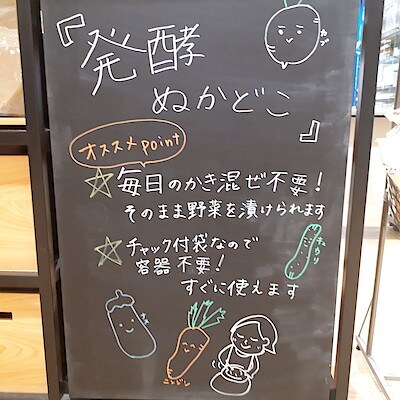 『発酵
ぬかどこ』
かぶ
オススメpoint
☆毎日のかき混ぜ不要!
そのまま野菜を漬けられます
☆チャック付袋なので
容器不要!
すぐに使えます
きゅうり
なす
にんじん